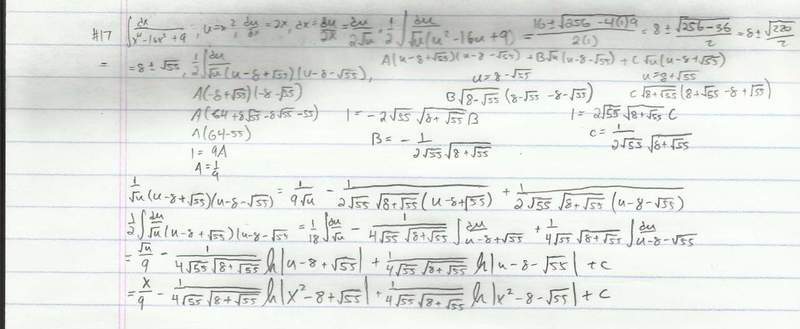 #17 ∫ dx/(x⁴-16x²+9), u=x², du/dx = 2x, dx = du/2x = du/(2√u), 1/2 ∫ du/(√u(u²-16u+9)) = (16±√(256-4(1)9))/2(1) = 8±√(256-36)/2 = 8±√220/2
= = 8±√55, 1/2 ∫ du/(√u(u-8+√55)(u-8-√55)), A(u-8+√55)(u-8-√55) + B√u(u-8-√55) + C√u(u-8+√55)
u=8-√55 u=8+√55
A(-8+√55)(-8-√55) B√(8-√55)(8-√55-8-√55) C√(8+√55)(8+√55-8+√55)
A(64+8√55-8√55-55) 1=-2√55√(8+√55)B 1=2√55√(8+√55)C
A(64-55) B=-1/(2√55√(8+√55)) C=1/(2√55√(8+√55))
1=9A
A=1/9
1/(√u(u-8+√55)(u-8-√55)) = 1/(9√u) - 1/(2√55√(8+√55)(u-8+√55)) + 1/(2√55√(8+√55)(u-8-√55))
1/2 ∫ du/(√u(u-8+√55)(u-8-√55)) = 1/18 ∫ du/√u - 1/(4√55√(8+√55)) ∫ du/(u-8+√55) + 1/(4√55√(8+√55)) ∫ du/(u-8-√55)
= √u/9 - 1/(4√55√(8+√55)) ln|u-8+√55| + 1/(4√55√(8+√55)) ln|u-8-√55| + c
= x/9 - 1/(4√55√(8+√55)) ln|x²-8+√55| + 1/(4√55√(8+√55)) ln|x²-8-√55| + c